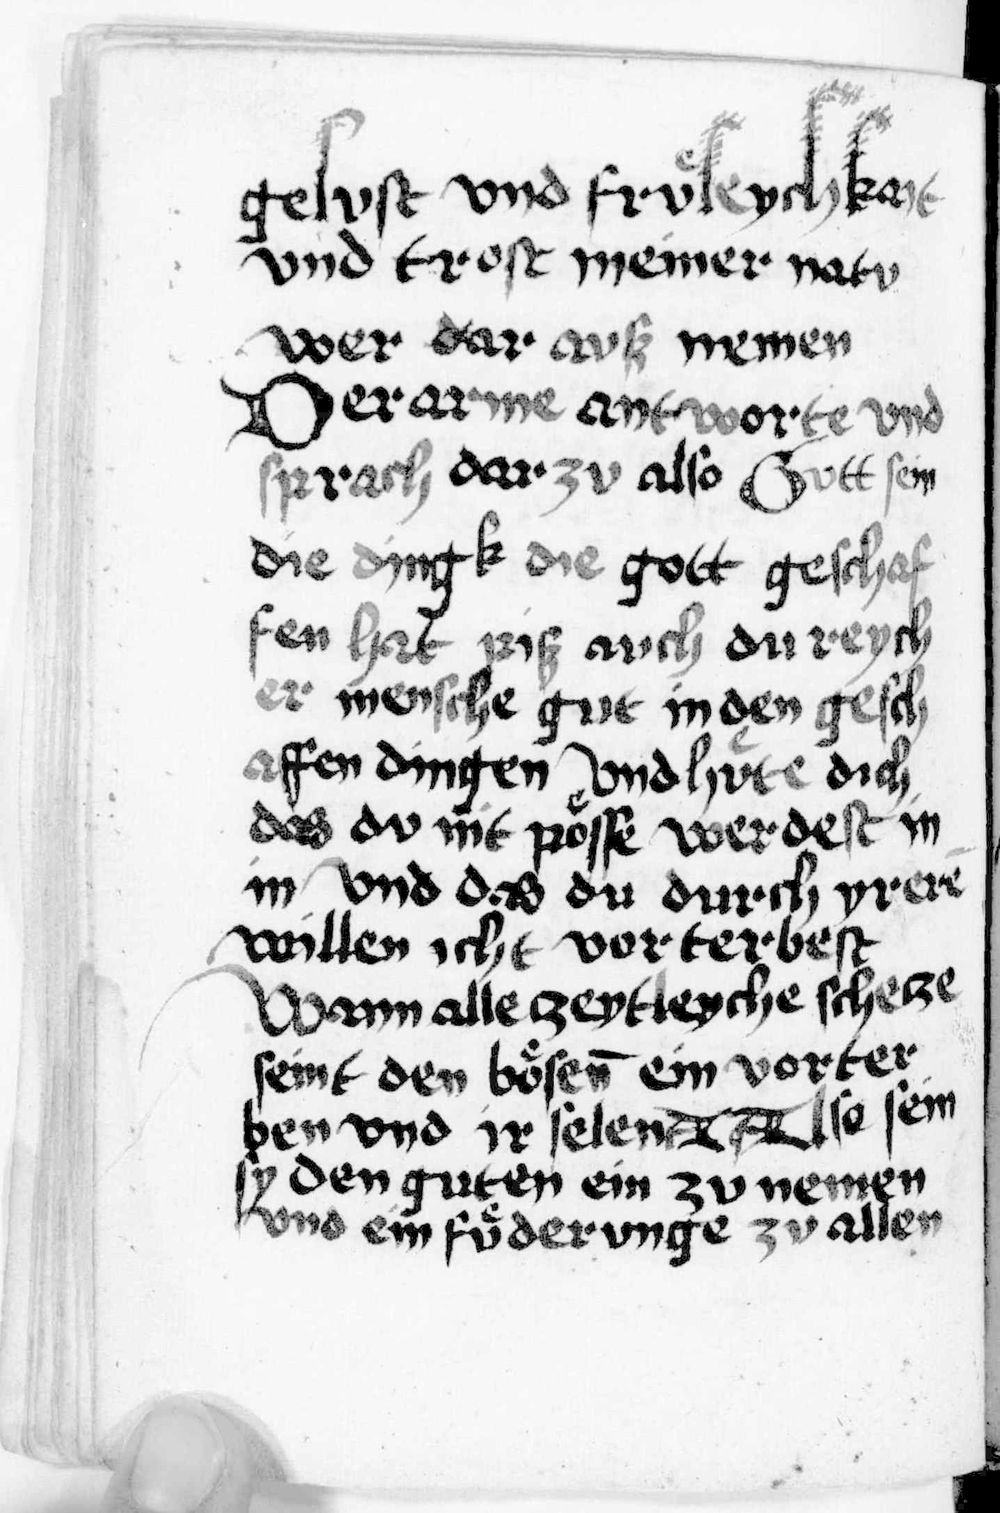 gelvst vnd frvͤleychkait
vnd trost meiner natv
wer dar avß nemen
Der arme antworte vnd
sprach dar zv also Gvtt sein
die dingk die gott geschaf
fen hat piß avch du reych
er mensche gut in den gesch
affen dingen vnd hvͤte dich
das dv nit poͤsse werdest in
in vnd das du durch yrerē
willen icht vorterbest
Wann alle zeytleyche schecze
seint den boͤsen̄ ein vorter
ben vnd ir selen Also sein
sy den guten ein zv nemen
vnd ein fvͤdervnge zv allen